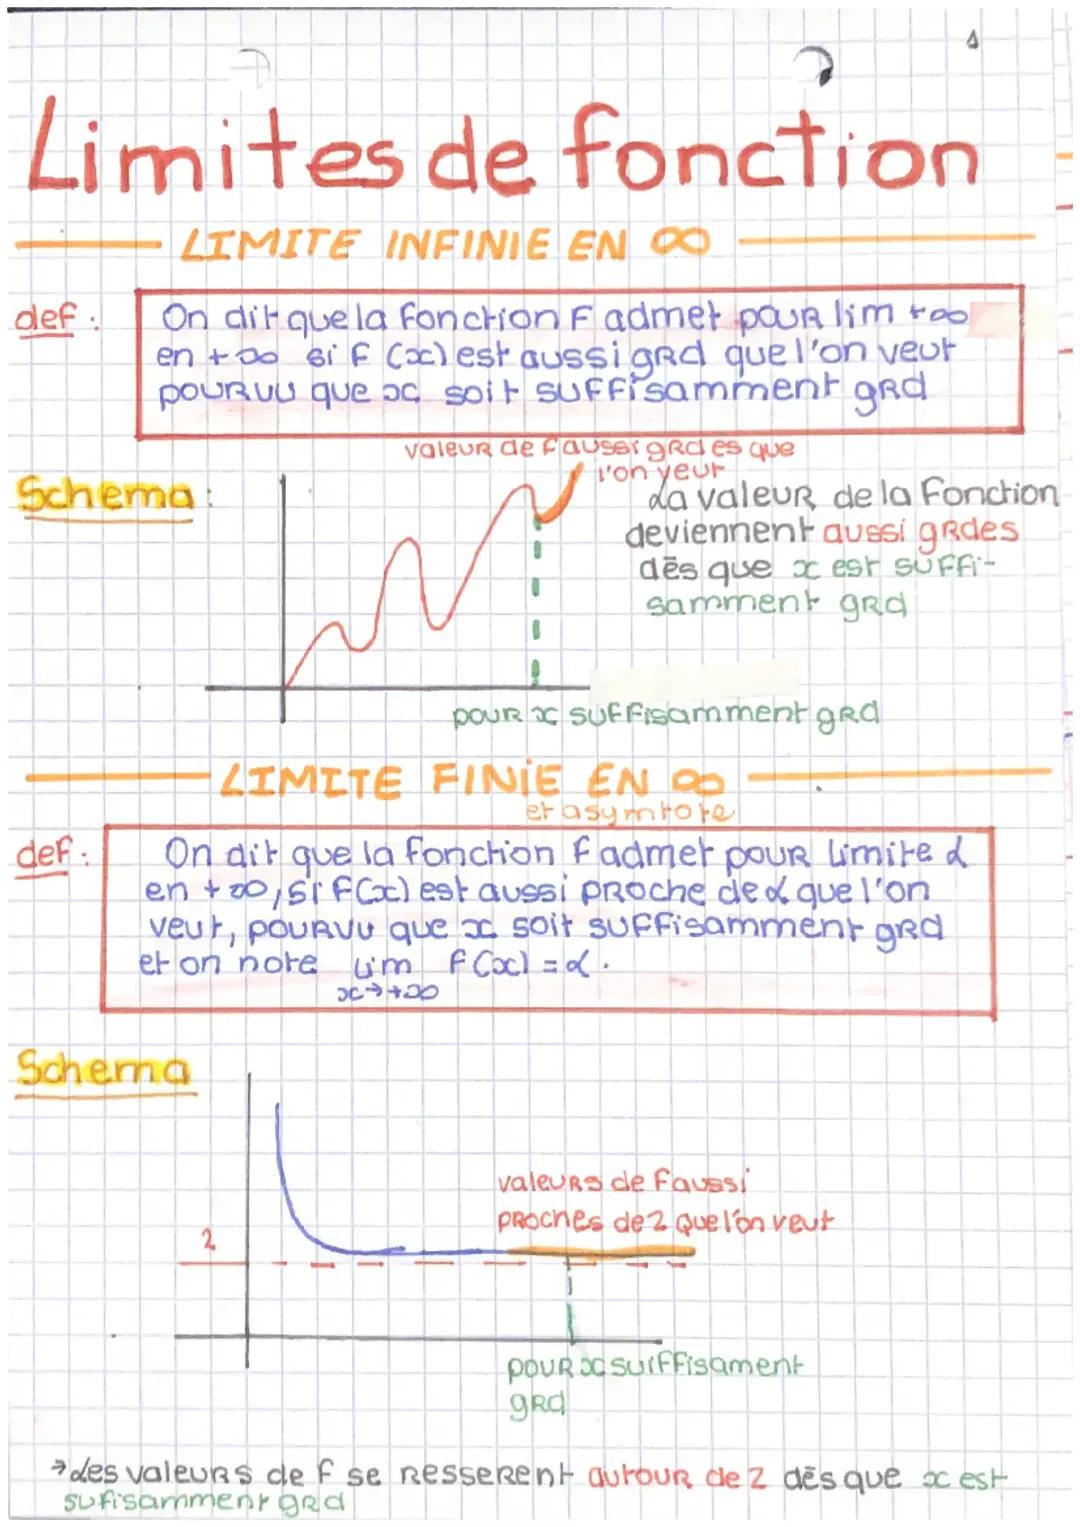 1
Limites de fonction
LIMITE INFINIE EN ∞
def :
On dit que la fonction F admet pour lim +∞
en +∞ si f (x) est aussi grd que l'on veut
pourvu que x soit suffisamment grd
valeur de f aussi grdes que
l'on veut
Schema :
La valeur de la Fonction
deviennent aussi grdes
dès que x est suffi-
samment grd
pour x suffisamment grd
LIMITE FINIE EN ∞
et asymtote
def :
On dit que la fonction f admet pour limite α
en +∞, si f(x) est aussi proche de α que l'on
veut, pourvu que x soit suffisamment grd
et on note lim f(x) = α.
x→+∞
Schema
valeurs de f aussi
proches de 2 que l'on veut
2
pour x suiffisament
grd
→ Les valeurs de f se resserent autour de 2 dès que x est
sufisamment grd